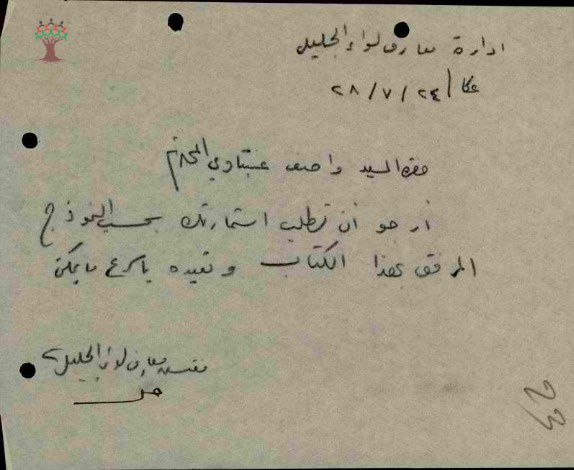 ادارة معارف لواء الجليل
عكا ٢٨/٧/٢٤
حضرة السيد واصف عبتاوي المحترم
ارجو ان تطلب استمارتك بحسب النموذج
المرفق بهذا الكتاب وتعيده باسرع ما يمكن
مفتش معارف لواء الجليل